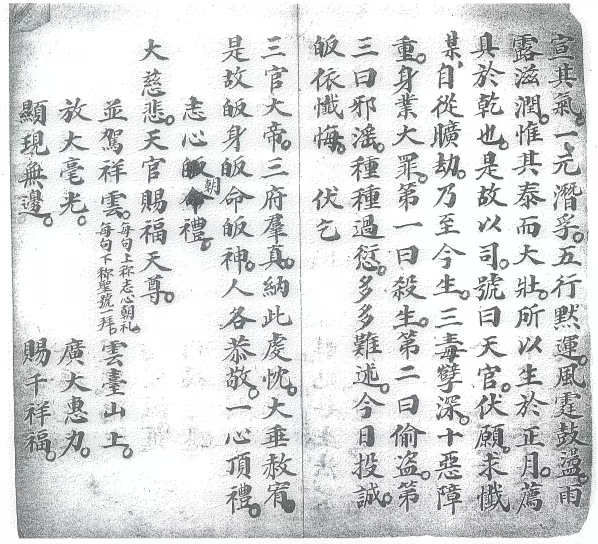 宣其氣。一元潛孚。五行默運。風霆鼓盪。雨
露滋潤。惟其泰而大壯。所以生於正月。薦
具於乾也。是故以司。號曰天官。伏願。求懺
某。自從曠劫。乃至今生。三毒孽深。十惡障
重。身業大罪。第一曰殺生。第二曰偷盜。第
三曰邪淫。種種過愆。多多難述。今日投誠。
皈依懺悔。 伏乞
三官大帝。三府羣真。納此虔忱。大垂赦宥。
是故皈身皈命皈神。人各恭敬。一心頂禮。
志心皈命朝禮。
大慈悲。天官賜福天尊。
並駕祥雲。每句上称志心朝礼 每句下称聖號一拜。雲臺山上。
放大毫光。 廣大惠力。
顯現無邊。 賜千祥福。